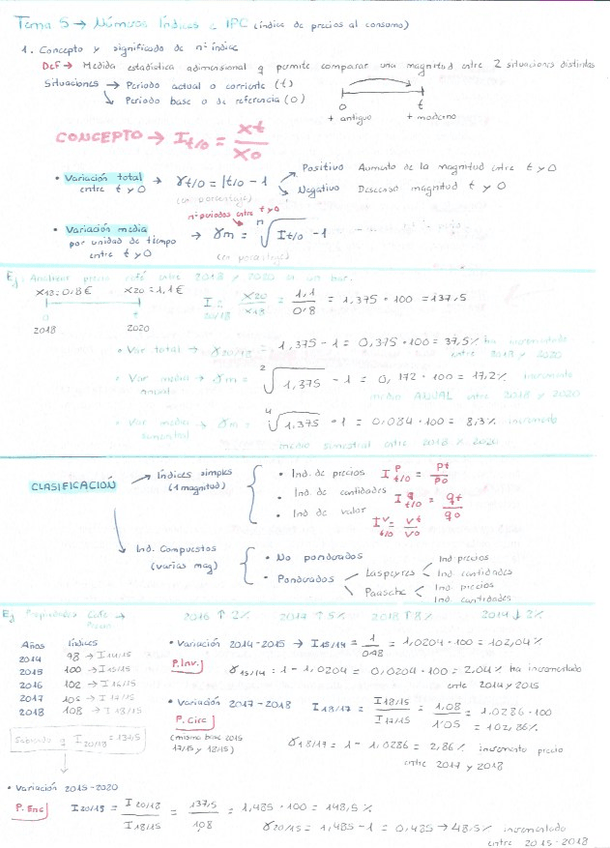 Tema 5 → Números Índices e IPC (índice de precios al consumo)
1. Concepto y significado de nº índice
Def → Medida estadística adimensional q permite comparar una magnitud entre 2 situaciones distintas
Situaciones → Periodo actual o corriente (t)
↘ Periodo base o de referencia (0)
0 t
+ antiguo + moderno
CONCEPTO → I t/0 = xt / x0
• Variación total entre t y 0 → γt/0 = It/0 - 1
(en porcentaje)
Positivo Aumento de la magnitud entre t y 0
Negativo Descenso magnitud t y 0
nº periodos entre t y 0
• Variación media por unidad de tiempo entre t y 0 → γm = n√It/0 - 1
(en porcentaje)
Ej. Analizar precio café entre 2018 y 2020 en un bar.
x18=0,8€ x20=1,1€
0 t
2018 2020
I 20/18 = x20 / x18 = 1,1 / 0,8 = 1,375 · 100 = 137,5
• Var total → γ20/18 = 1,375 - 1 = 0,375 · 100 = 37,5% ha incrementado
entre 2018 y 2020
• Var media anual → γm = 2√1,375 - 1 = 0,172 · 100 = 17,2% incremento
medio ANUAL entre 2018 y 2020
• Var media semestral → γm = 4√1,375 - 1 = 0,084 · 100 = 8,3% incremento
medio semestral entre 2018 y 2020
CLASIFICACIÓN
Índices simples (1 magnitud)
• Ind. de precios I p t/0 = pt / p0
• Ind. de cantidades I q t/0 = qt / q0
• Ind de valor I v t/0 = vt / v0
Ind. Compuestos (varias mag)
• No ponderados
• Ponderados
Laspeyres
Ind precios
Ind cantidades
Paasche
Ind. precios
Ind cantidades
Ej Propiedades Café → 2016 ↑ 2% 2017 ↑ 5% 2018 ↑ 8% 2014 ↓ 2%
Años Índices
2014 98 → I 14/15
2015 100 → I 15/15
2016 102 → I 16/15
2017 105 → I 17/15
2018 108 → I 18/15
Sabiendo q I 20/18 = 137,5
• Variación 2014-2015 → I 15/14 = 1 / 0,98 = 1,0204 · 100 = 102,04%
P. Inv.
γ 15/14 = 1 - 1,0204 = 0,0204 · 100 = 2,04% ha incrementado
entre 2014 y 2015
• Variación 2017-2018 I 18/17 = I 18/15 / I 17/15 = 1,08 / 1,05 = 1,0286 · 100
= 102,86%
P. Circ
(misma base 2015 17/15 y 18/15)
γ 18/17 = 1 - 1,0286 = 2,86% incremento precio
entre 2017 y 2018
• Variación 2015-2020
P. Enc
= 1,485 · 100 = 148,5%
γ 20/15 = 1,485 - 1 = 0,485 → 48,5% incrementado
entre 2015-2018